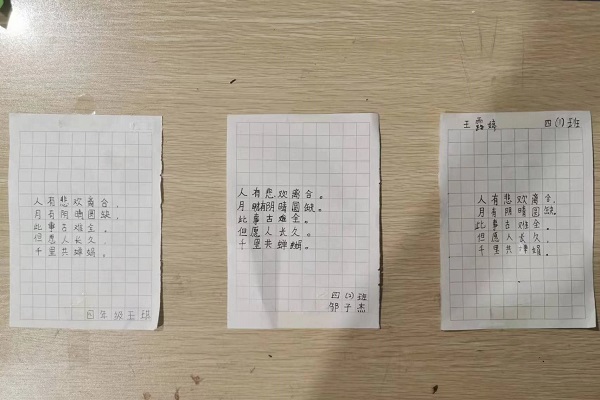 人有悲欢离合，
月有阴晴圆缺，
此事古难全。
但愿人长久，
千里共婵娟。
四年级五班
人有悲欢离合。
月有阴晴圆缺。
此事古难全。
但愿人长久。
千里共婵娟。
四(2)班
邹子杰
王 婷 四(1)班
人有悲欢离合，
月有阴晴圆缺。
此事古难全。
但愿人长久，
千里共婵娟。